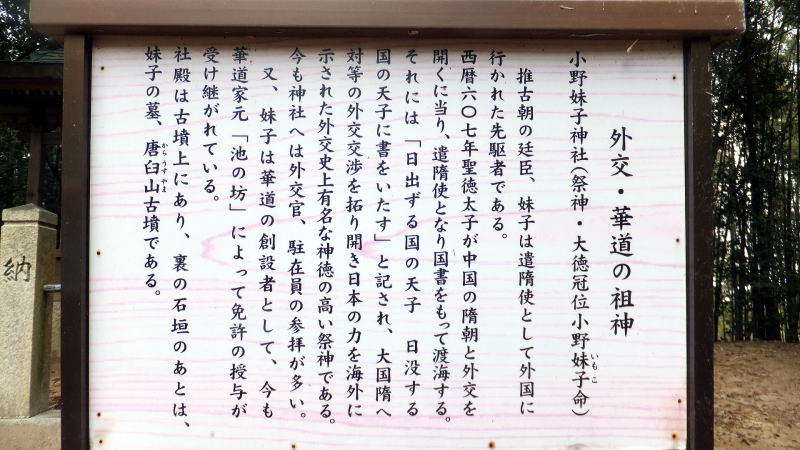 外交・華道の祖神
小野妹子神社(祭神・大徳冠位小野妹子命)
いもこ
推古朝の廷臣、妹子は遣隋使として外国に
行かれた先駆者である。
西暦六〇七年聖徳太子が中国の隋朝と外交を
開くに当り、遣隋使となり国書をもって渡海する。
それには「日出ずる国の天子 日没する
国の天子に書をいたす」と記され、大国隋へ
対等の外交交渉を拓り開き日本の力を海外に
示された外交史上有名な神徳の高い祭神である。
今も神社へは外交官、駐在員の参拝が多い。
又、妹子は華道の創設者として、今も
華道家元「池の坊」によって免許の授与が
受け継がれている。
社殿は古墳上にあり、裏の石垣のあとは、
妹子の墓、唐臼山古墳である。
からうすやま
納